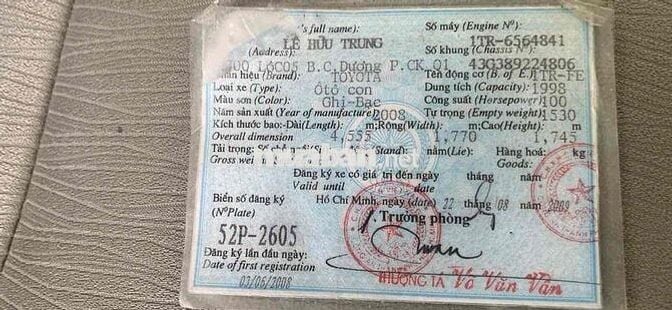 's full name): LÊ HỮU TRUNG Số máy (Engine Nº): 1TR-6564841
(Address): Số khung (Chassis Nº):
LÔC05 B.C.Dương P.CK Q1 43G389224806
Nhãn hiệu (Brand): TOYOTA Tên động cơ (B. of E.) 1TR-FE
Loại xe (Type): Ôtô con Dung tích (Capacity): 1998
Màu sơn (Color): Ghi-Bạc Công suất (Horsepower) 100
Năm sản xuất (Year of manufacture) 2008 Tự trọng (Empty weight) 1530
Kích thước bao:-Dài(Length); m;Rộng(Width); m;Cao(Height); m
Overall dimension 4,555 1,770 1,745
Tải trọng: Số chỗ ngồi Stand): nằm(Lie): Hàng hoá: kg
Gross wei Goods:
muaban.net
Đăng ký xe có giá trị đến ngày tháng năm
Valid until date
Biển số đăng ký Hồ Chí Minh, ngày (date) 22 tháng 08 năm
(NºPlate) Trưởng phòng
52P-2605
Đăng ký lần đầu ngày:
Date of first registration
03/06/2008
THƯỢNG TÁ Võ Văn Vân